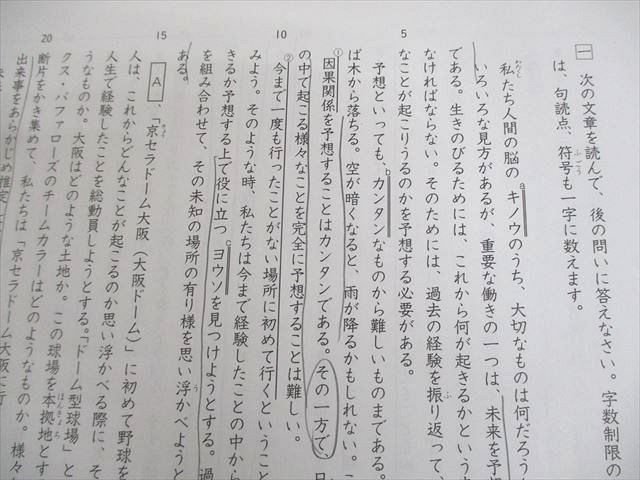 一 次の文章を読んで、後の問いに答えなさい。字数制限の
は、句読点、符号も一字に数えます。
私たち人間の脳のキノウのうち、大切なものは何だろう
いろいろな見方があるが、重要な働きの一つは、未来を予
である。生きのびるためには、これから何が起きるかという
なければならない。そのためには、過去の経験を振り返って、
なことが起こりうるのかを予想する必要がある。
予想といっても、カンタンなものから難しいものまである。
ば木から落ちる。空が暗くなると、雨が降るかもしれない。こ
因果関係を予想することはカンタンである。その一方で、日
の中で起こる様々なことを完全に予想することは難しい。
今まで一度も行ったことがない場所に初めて行くということ
みよう。そのような時、私たちは今まで経験したことの中から
きるか予想する上で役に立つヨウソを見つけようとする。過
を組み合わせて、その未知の場所の有り様を思い浮かべようと
ある。
A、「京セラドーム大阪(大阪ドーム)」に初めて野球を
人は、これからどんなことが起こるのか思い浮かべる際に、そ
人生で経験したことを総動員しようとする。「ドーム型球場」と
うなものか。大阪はどのような土地か。この球場を本拠地とす
クス・バファローズのチームカラーはどのようなものか。様々
断片をかき集めて、私たちは「京セラドーム大阪に行
出来事をあらかじめ推定し
わたくし
ふごう
ふ
う
ほんきょち
a
b
c
①
②
5
10
15
20